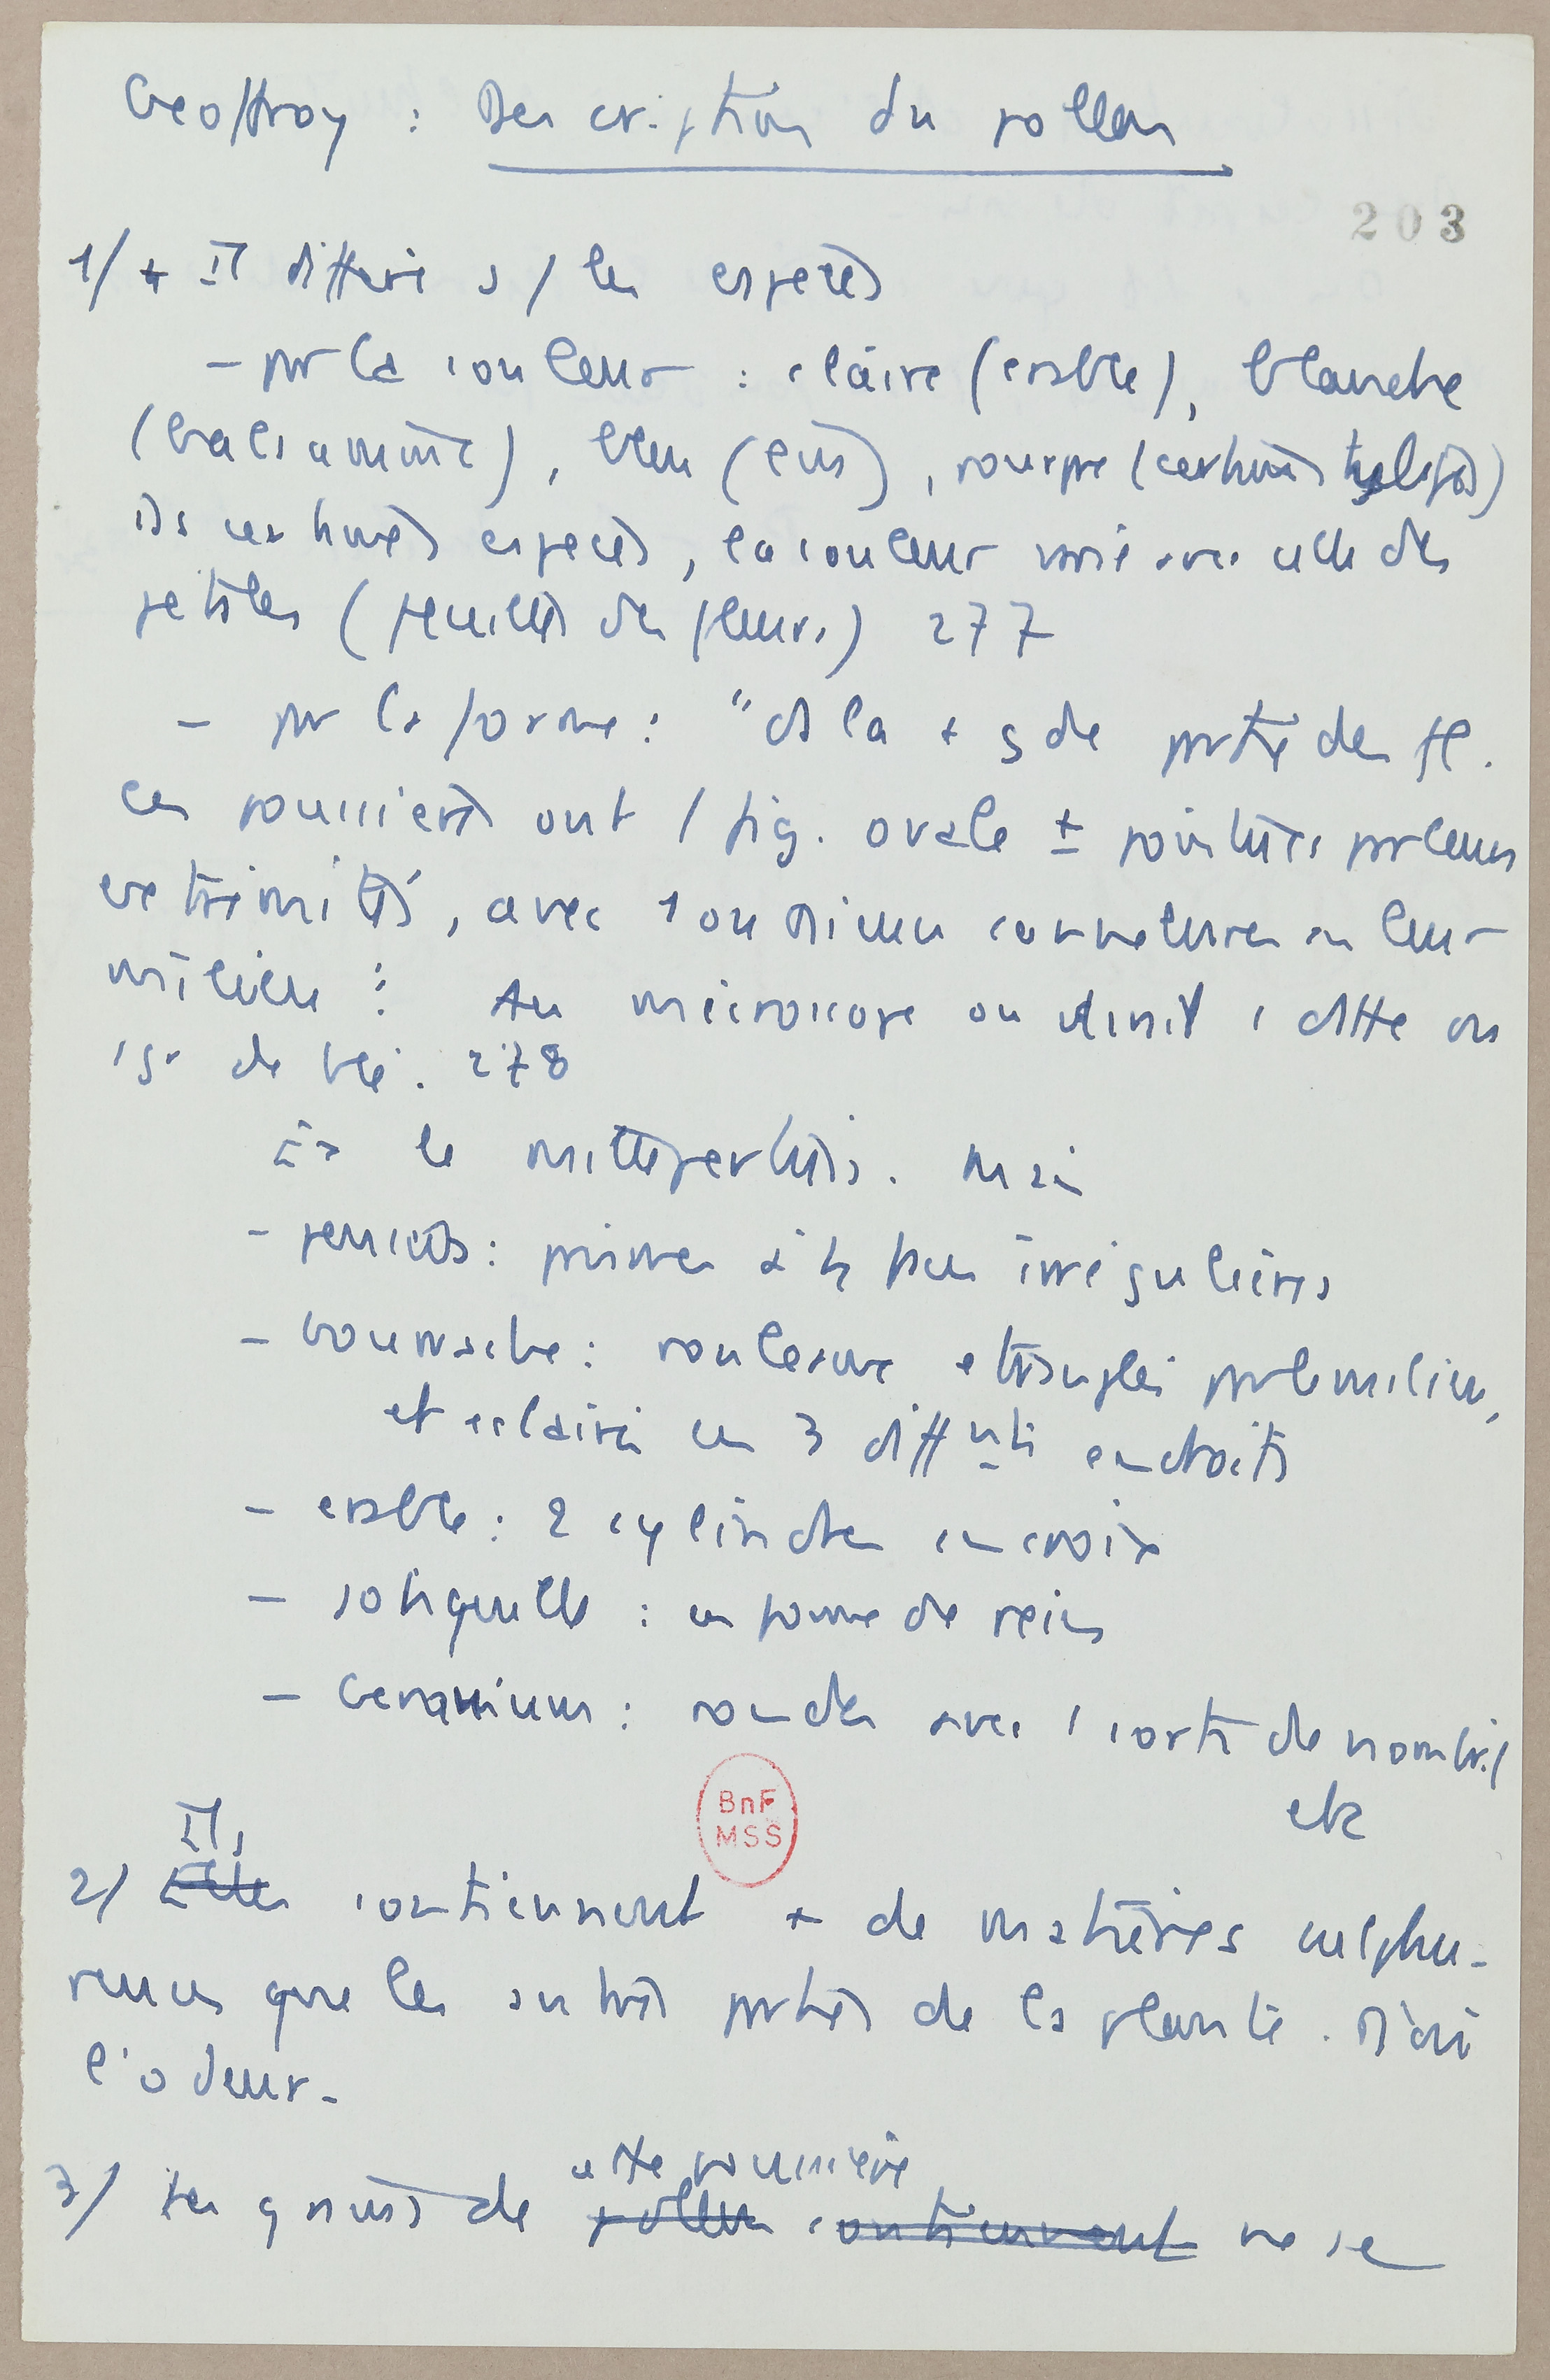 Geoffroy : Description du pollen
203
1/ + Il diffère s/ les espèces
– par la couleur : claire (érable), blanche
(balsamine), bleu (lin), pourpre (certaines tulipes)
ds certaines espèces, la couleur varie avec celle des
pétales (feuilles des fleurs) 277
– par la forme : "ds la + gde partie des fl.
ces poussières ont 1 fig. ovale ± pointues par leurs
extrémités, avec 1 ou plusieurs cannelures en leur
milieu : Au microscope on dirait 1 datte ou
1 gr de blé. 278
le millepertuis. Mais
– pensées : prismes à 4 pans irréguliers
– bourrache : rouleaux étranglés par le milieu,
et éclairés en 3 différnts endroits
– érable : 2 cylindres en croix
– jonquille : en forme de reins
– Geranium : rondes avec 1 sorte de nombril
etc
Ils
2/ Elles contiennent + de matières sulphu-
reuses que les autres parties de la plante. D'où
l'odeur.
cette poussière
3/ les grains de pollen contiennent ne se